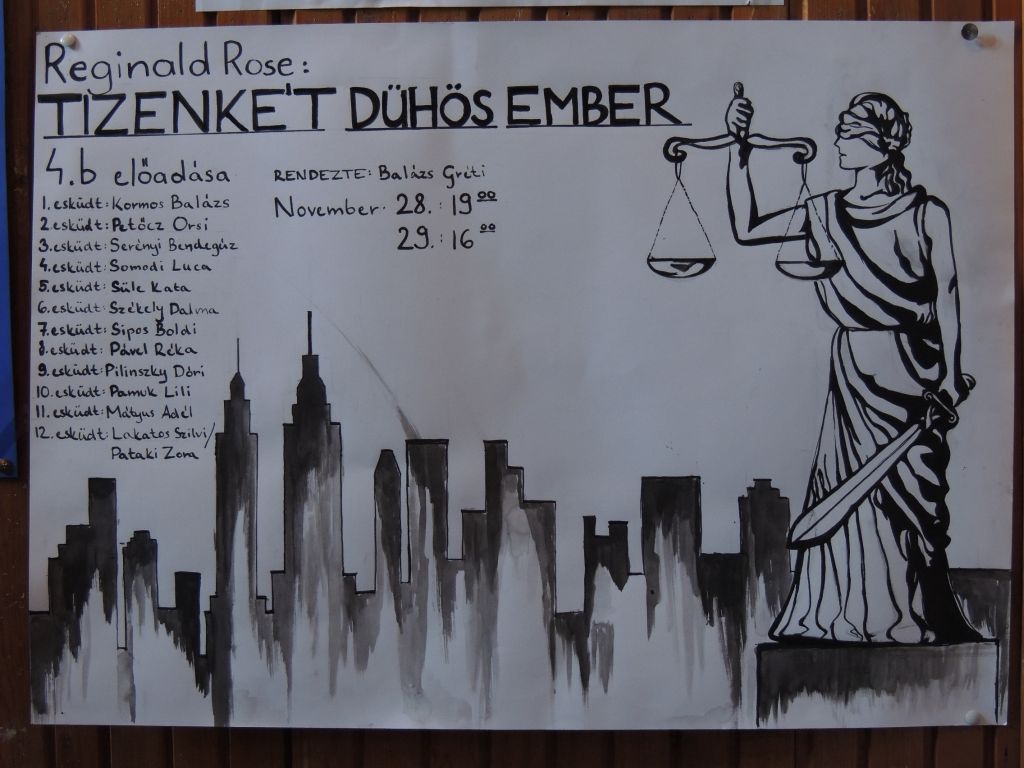 Reginald Rose:
TIZENKÉT DÜHÖS EMBER
4.b előadása
1. esküdt: Kormos Balázs
2. esküdt: Petőcz Orsi
3. esküdt: Serényi Bendegúz
4. esküdt: Somodi Luca
5. esküdt: Süle Kata
6. esküdt: Székely Dalma
7. esküdt: Sipos Boldi
8. esküdt: Pável Réka
9. esküdt: Pilinszky Dóri
10. esküdt: Pamuk Lili
11. esküdt: Mátyus Adél
12. esküdt: Lakatos Szilvi/
Pataki Zora
RENDEZTE: Balázs Gréti
November. 28. : 19 00
29. : 16 00